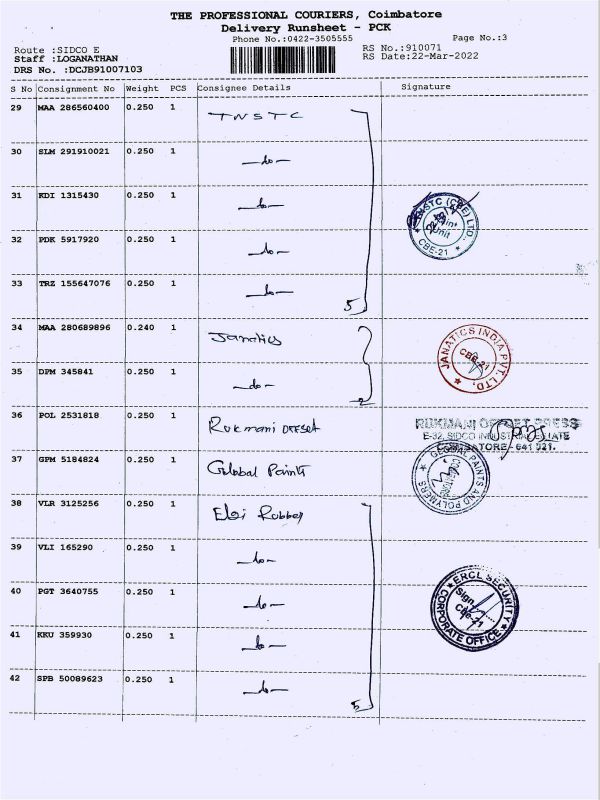 THE PROFESSIONAL COURIERS, Coimbatore
Delivery Runsheet - PCK
Phone No.:0422-3505555
Page No.:3
Route :SIDCO E
RS No.:910071
Staff :LOGANATHAN
RS Date:22-Mar-2022
DRS No. :DCJB91007103
S No Consignment No Weight PCS Consignee Details Signature
29 MAA 286560400 0.250 1 TNSTC
30 SLM 291910021 0.250 1 -do-
31 KDI 1315430 0.250 1 -do-
32 PDK 5917920 0.250 1 -do-
33 TRZ 155647076 0.250 1 -do- 5
34 MAA 280689896 0.240 1 Janatics
35 DPM 345841 0.250 1 -do- 2
36 POL 2531818 0.250 1 Rukmani OFFSET
37 GPM 5184824 0.250 1 Global Paints
38 VLR 3125256 0.250 1 Elgi Rubber
39 VLI 165290 0.250 1 -do-
40 PGT 3640755 0.250 1 -do-
41 KKU 359930 0.250 1 -do-
42 SPB 50089623 0.250 1 -do- 5
TNSTC (CBE) LTD.
Print
Unit
CBE-21
JANATICS INDIA PVT. LTD.
CBE-21
RUKMANI OFFSET PRESS
E-32, SIDCO INDUSTRIAL ESTATE
COIMBATORE - 641 021.
GLOBAL PAINTS AND POLYMERS
COIMBATORE
ERCL SECURITY
Sign
Cbe-21
CORPORATE OFFICE